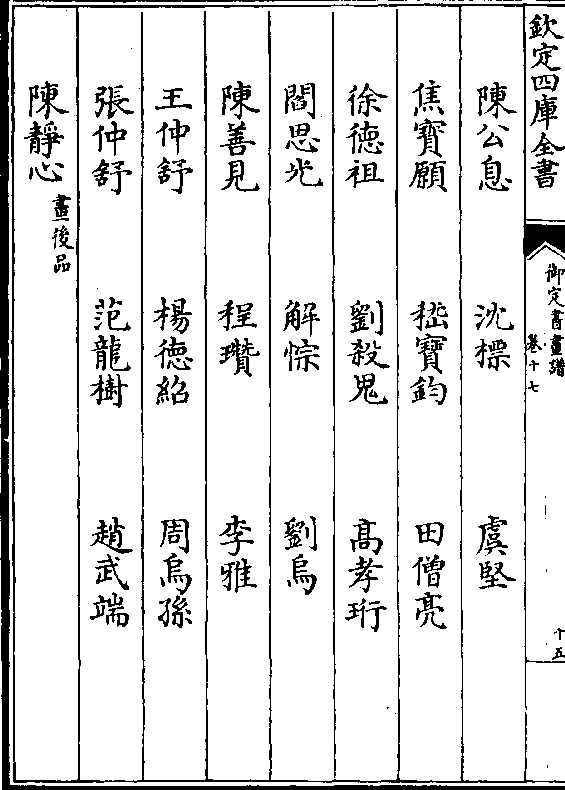 欽定四庫全書
御定書畫譜
卷十七
十五
陳公息 沈標 虞堅
焦寶願 嵇寶鈞 田僧亮
徐德祖 劉殺鬼 高孝珩
閻思光 解悰 劉烏
陳善見 程瓚 李雅
王仲舒 楊德紹 周烏孫
張仲舒 范龍樹 趙武端
陳靜心 畫後品